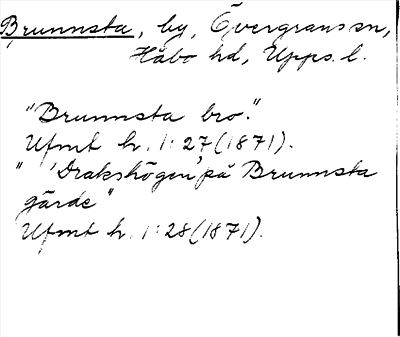 Brunnsta, by, Övergrans sn,
Håbo hd, Upps. l.
"Brunnsta bro."
Ufmt h. 1:27 (1871).
" 'Drakshögen' på Brunnsta
gärde"
Ufmt h. 1:28 (1871).